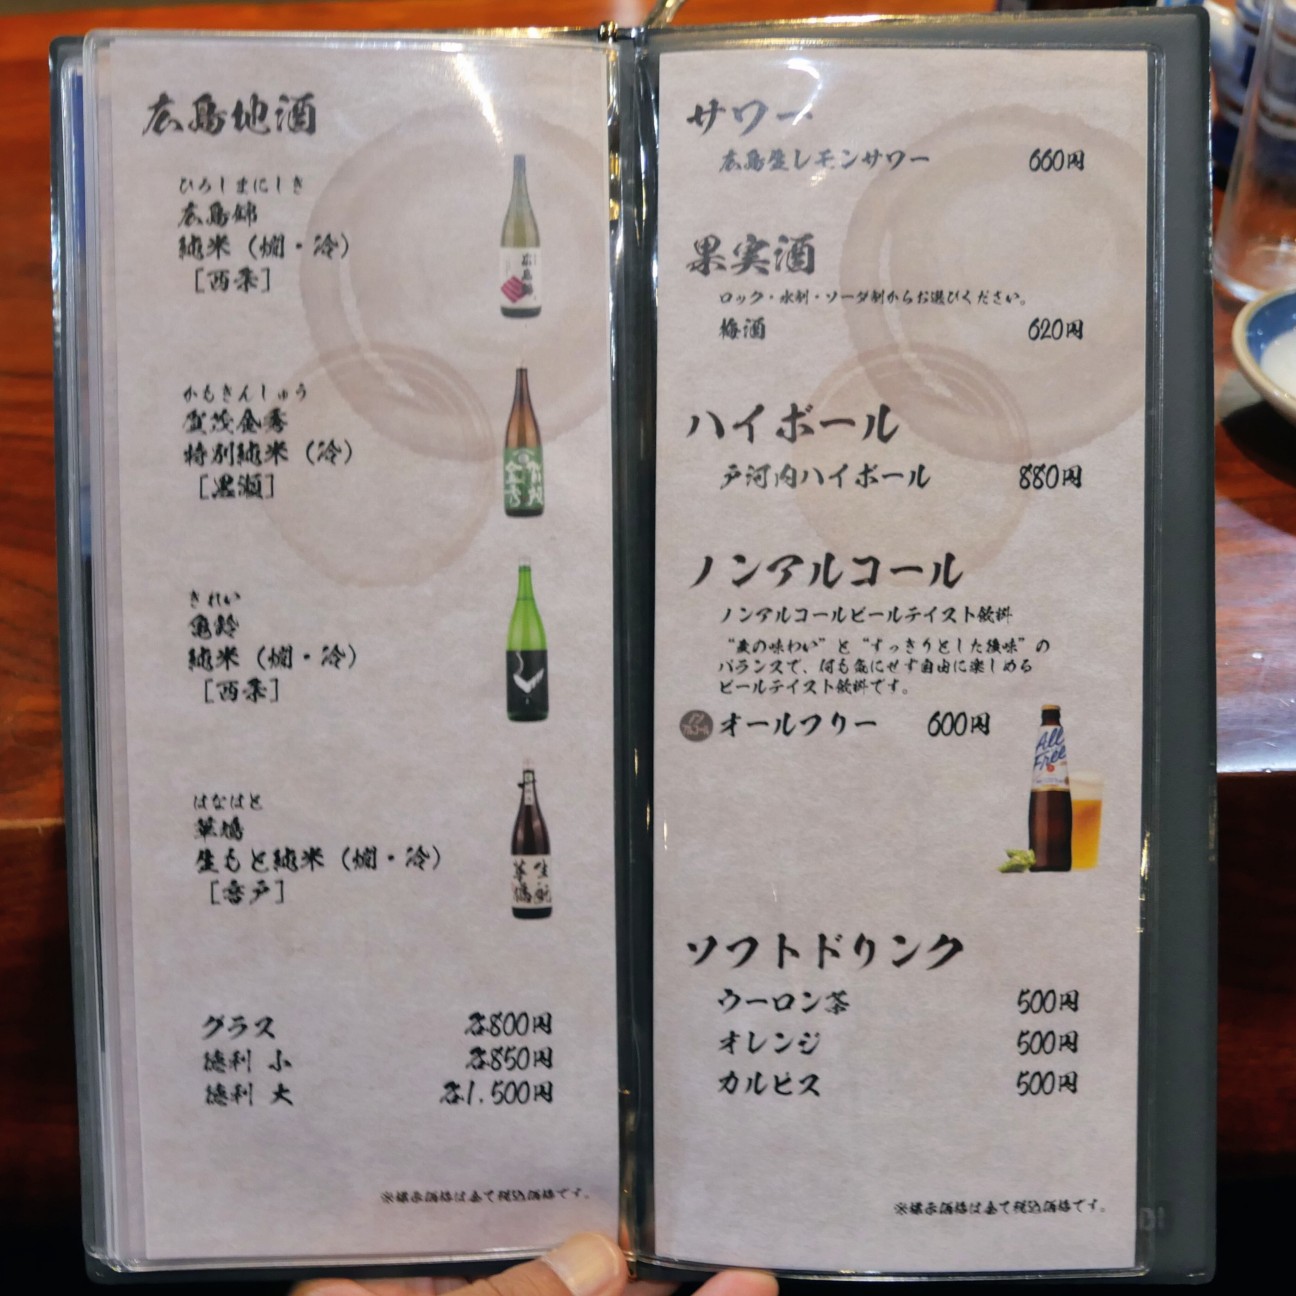 広島地酒
ひろしまにしき
広島錦
純米（燗・冷）
［西条］
かもきんしゅう
賀茂金秀
特別純米（冷）
［黒瀬］
きれい
亀齢
純米（燗・冷）
［西条］
はなはと
華鳩
生もと純米（燗・冷）
［音戸］
グラス 各800円
徳利 小 各850円
徳利 大 各1,500円
※標示価格は全て税込価格です。
サワー
広島生レモンサワー 660円
果実酒
ロック・水割・ソーダ割からお選びください。
梅酒 620円
ハイボール
戸河内ハイボール 880円
ノンアルコール
ノンアルコールビールテイスト飲料
“麦の味わい”と“すっきりとした後味”の
バランスで、何も気にせず自由に楽しめる
ビールテイスト飲料です。
オールフリー 600円
All
Free
ソフトドリンク
ウーロン茶 500円
オレンジ 500円
カルピス 500円
※標示価格は全て税込価格です。